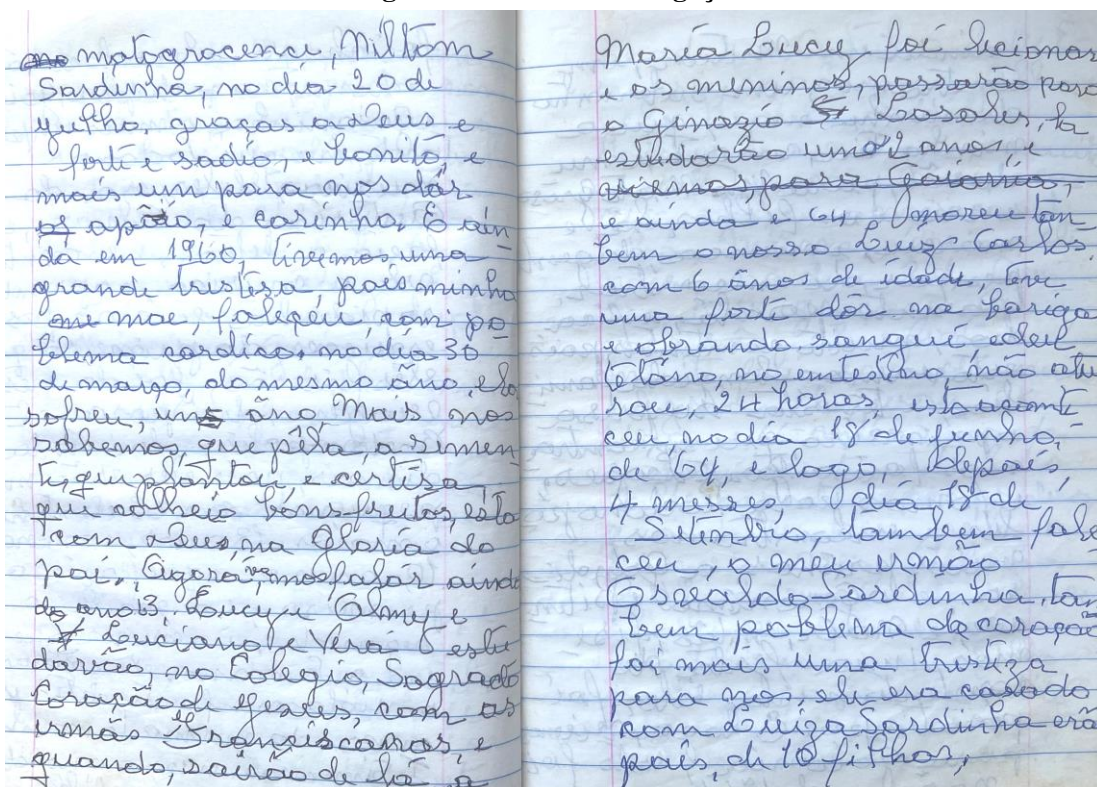 matogrocence, Niltom
Sardinha, no dia 20 de
yulho, graças a Deus e
forte e sadio, e bonito, e
mais um para nos dár
apóio, e carinho, E ain
da em 1960, tivemos uma
grande tristesa, pois minha
mae, faleçeu, com po
blema cardíco, no dia 30
de março, do mesmo âno, ela
sofreu, um âno Mais nos
sabemos, que pêla, a simen
te, que plantou e certêsa
que colheio bons frutos, esta
com Deus, na Gloria do
pai, Agora vamos falár ainda
do ano 3, Lucy e Elmy e
Luciano e Vera estu
davão, no Colegio, Sagrado
Coração de Jesus, com as
irmãs Françiscanas, e
quando, sairão de lá, a
Maria Lucy foi lecionar
e os meninos, passarão para
o Ginazio Losoles, la
estudarão uns 2 anos, e
viemos, para Goiania,
e ainda e 64 moreu tan
bem o nosso Luiz Carlos
com 6 ânos de idade, teve
uma forte dôr na bariga
e obrando sangue, edeu
tetâno, no emtestino, não atu
rou, 24 horas, isto aconte
ceu no dia 18 de junho,
de 64, e logo, depois
4 messes, dia 18 de
Setembro, tambem fale
ceu, o meu irmão
Osvaldo Sardinha, tan
bem poblema de coração
foi mais uma tristeza
para nos, ele era casado
com Luiza Sardinha erã
pais, de 10 filhos,